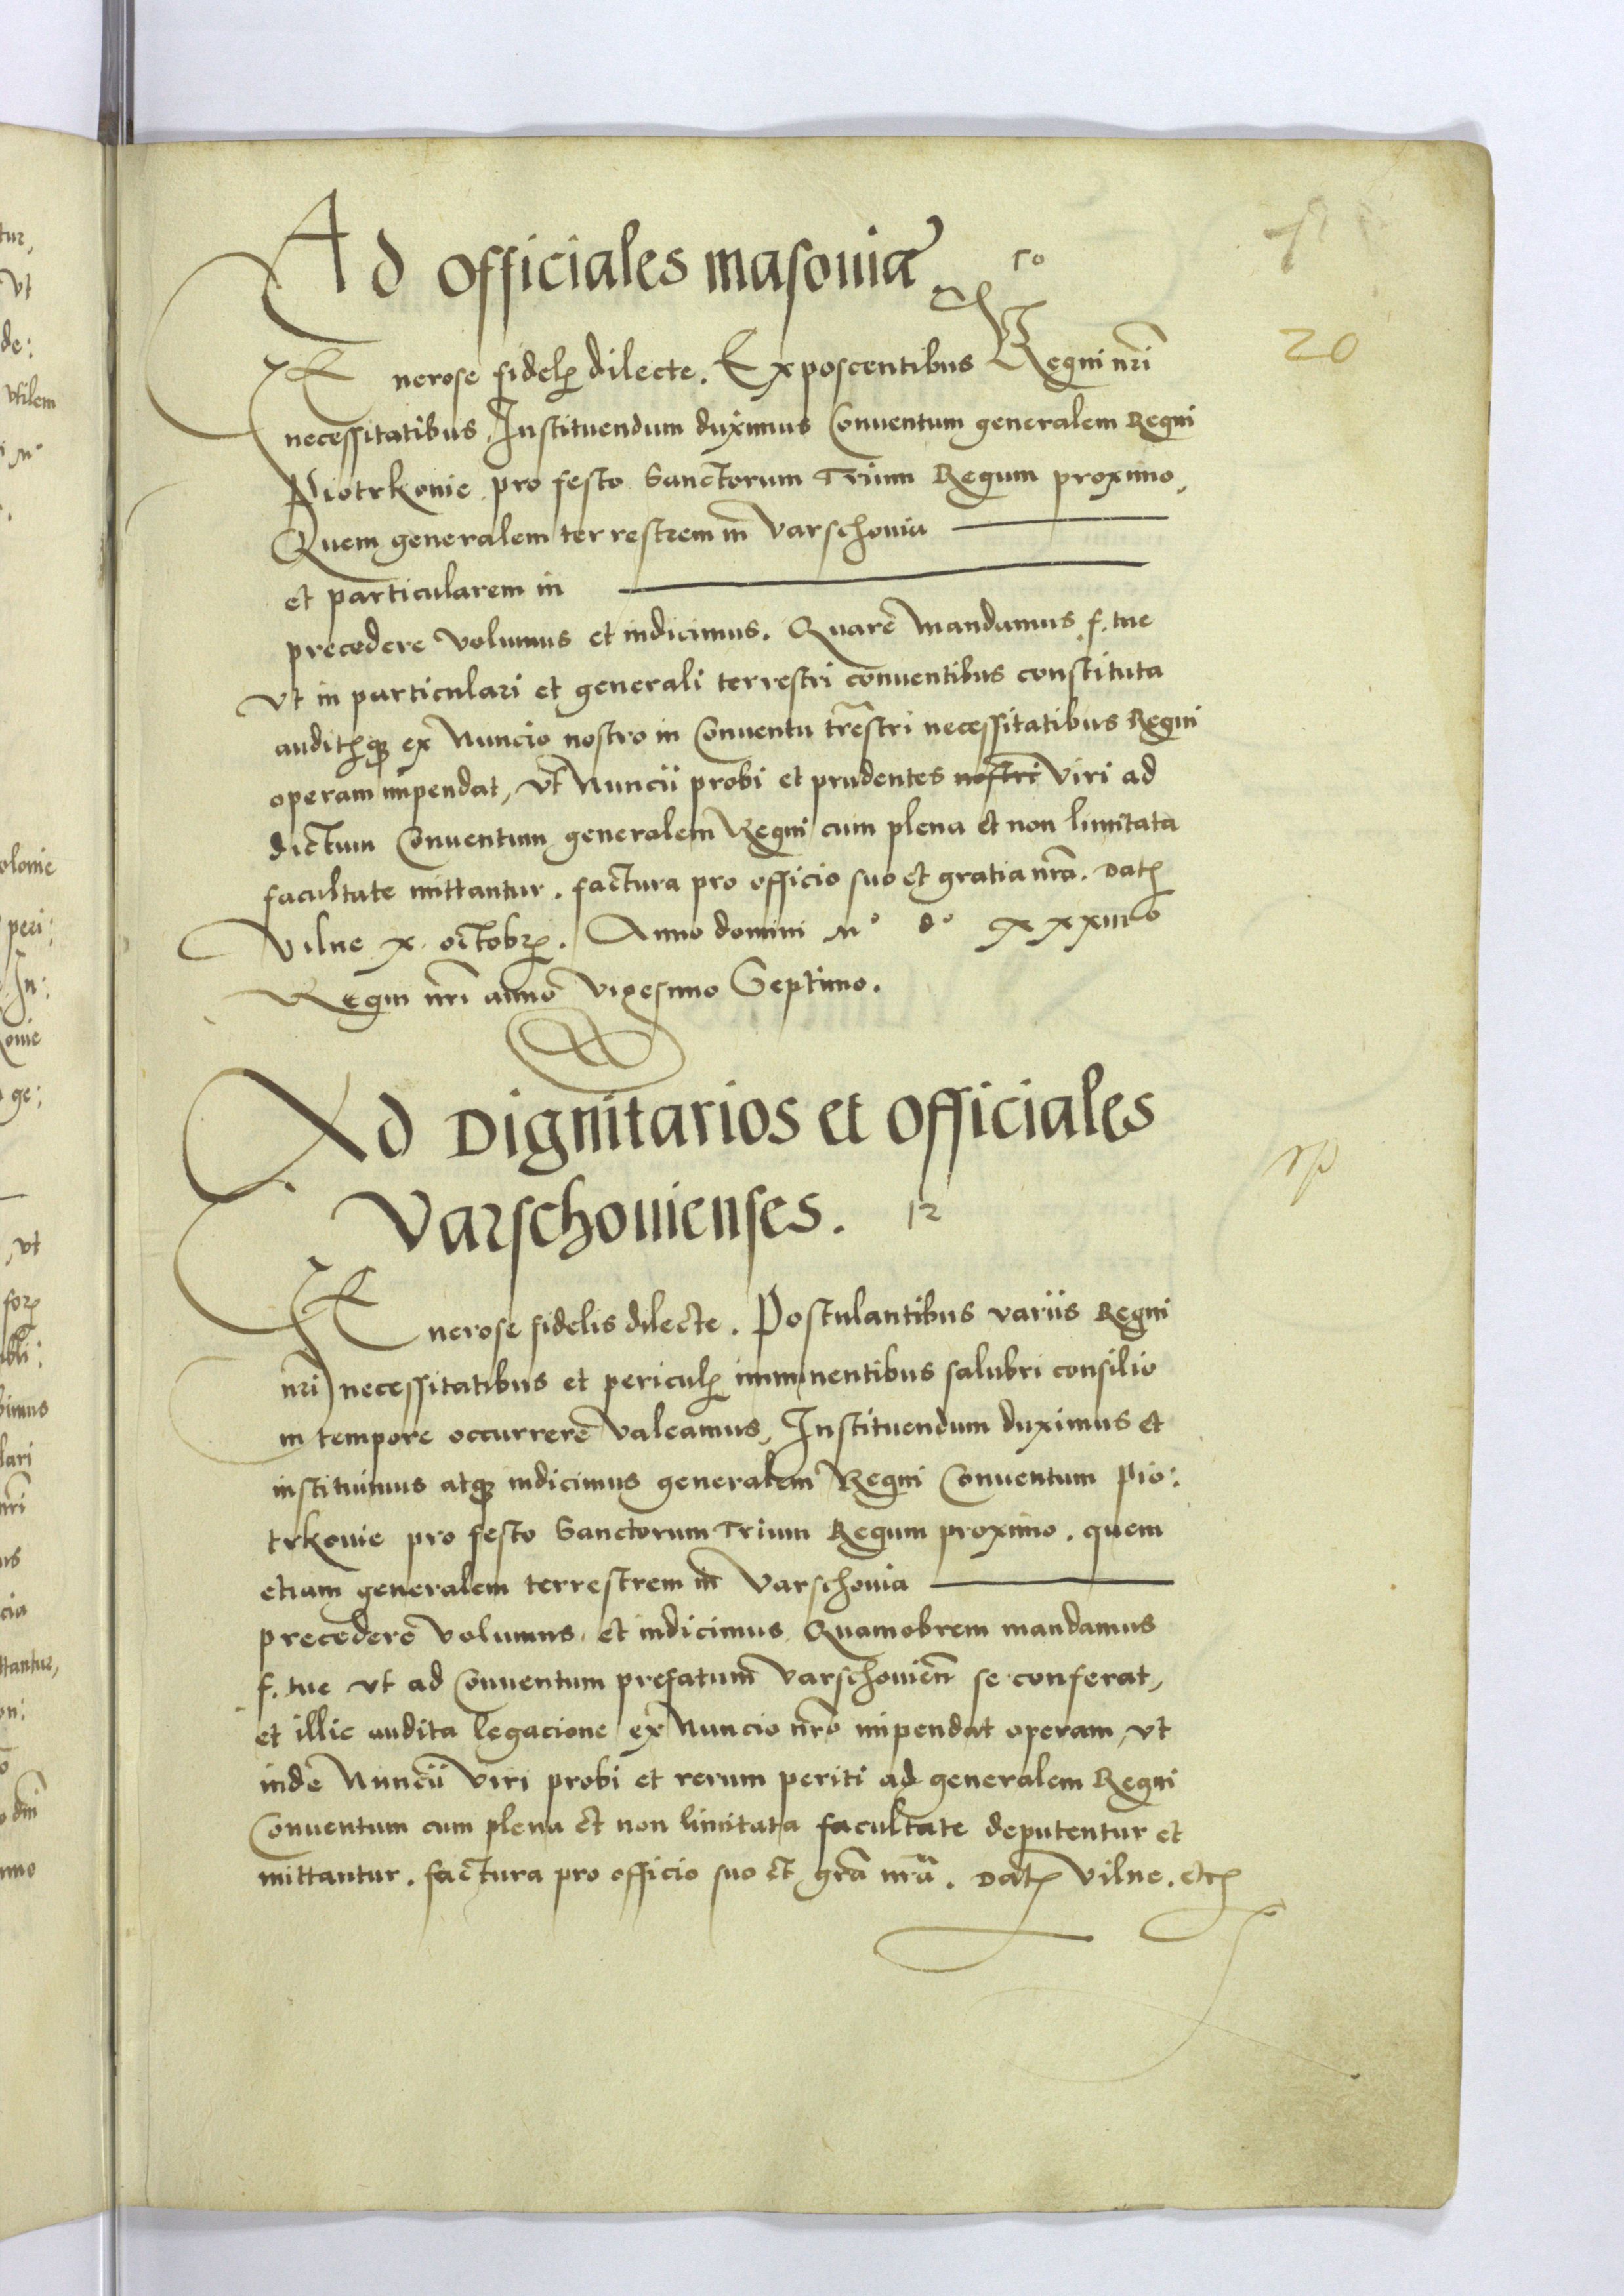 Ad officiales masouiæ
20
Generose fidelꝭ dilecte. Exposcentibus Regni nr̄i
necessitatibus Instituendum duximus Conuentum generalem Regni
Piotrkouie pro festo Sanctorum Trium Regum proximo,
Quem generalem terrestrem in Varschouia
et particularem in
precedere volumus et indicimus. Quare mandamus f. tue
vt in particulari et generali terrestri conuentibus constituta
auditisqꝫ ex Nuncio nostro in Conuentu tr̄estri necessitatibus Regni
operam impendat, vt Nuncii probi et prudentes nostri viri ad
dictum Conuentum generalem Regni cum plena et non limitata
facultate mittantur. factura pro officio suo et gratia nr̄a. Datꝭ
Vilne x octobrꝭ. Anno domini Mº dº xxxiiiº
Regni nr̄i anno Vigesimo Septimo.
Ad Dignitarios et officiales
Varschouienses. 12
Generose fidelis dilecte. Postulantibus variis Regni
nr̄i necessitatibus et periculꝭ imminentibus salubri consilio
in tempore occurrere valeamus, Instituendum duximus et
instituimus atqꝫ indicimus generalem Regni Conuentum Pio:
trkouie pro festo Sanctorum Trium Regum proximo. quem
etiam generalem terrestrem in Varschouia
precedere volumus et indicimus Quamobrem mandamus
f. tue vt ad Conuentum prefatum Varschouien̄ se conferat,
et illic audita legacione ex Nuncio nr̄o impendat operam, vt
inde Nuncii viri probi et rerum periti ad generalem Regni
Conuentum cum plena et non limitata facultate deputentur et
mittantur. factura pro officio suo et gr̄a nr̄a. Datꝭ Vilne. etcꝭ